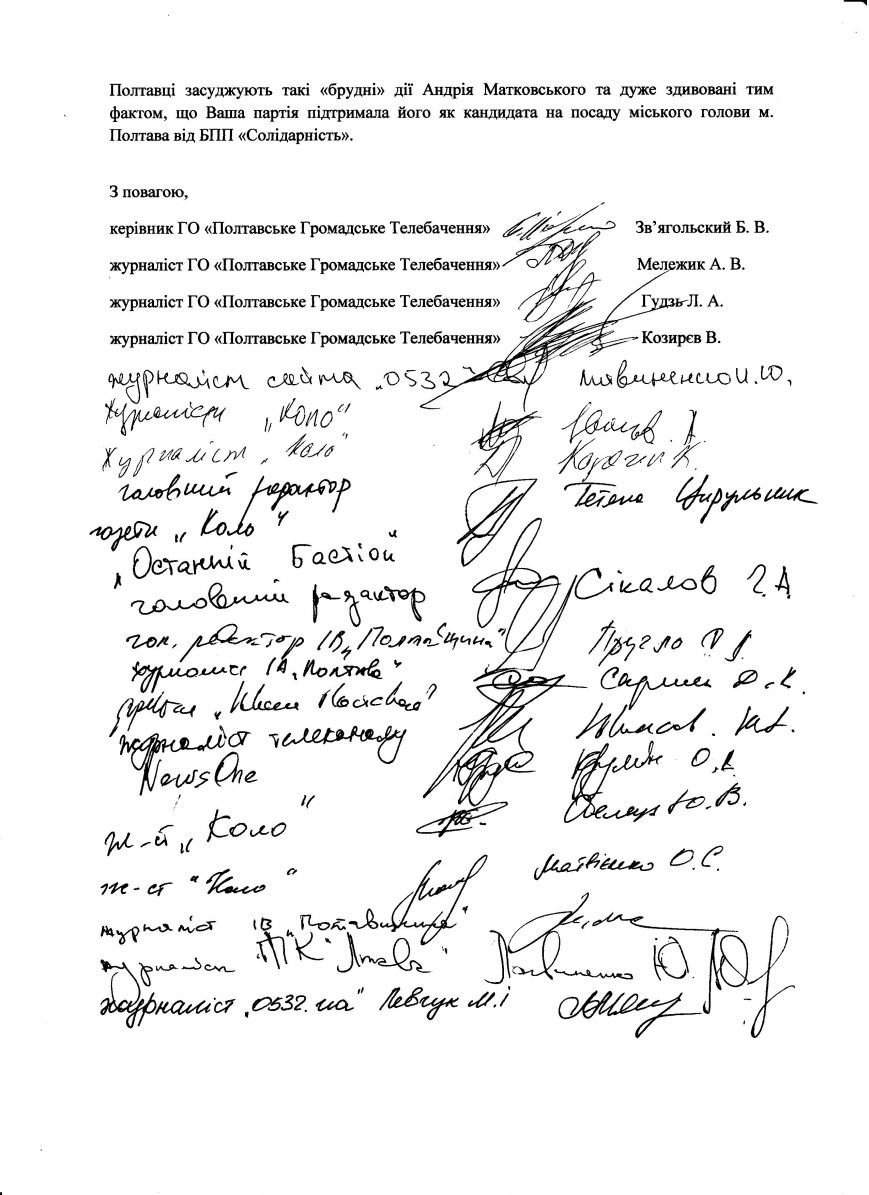 Полтавці засуджують такі «брудні» дії Андрія Матковського та дуже здивовані тим
фактом, що Ваша партія підтримала його як кандидата на посаду міського голови м.
Полтава від БПП «Солідарність».
З повагою,
керівник ГО «Полтавське Громадське Телебачення» Зв’ягольский Б. В.
журналіст ГО «Полтавське Громадське Телебачення» Мележик А. В.
журналіст ГО «Полтавське Громадське Телебачення» Гудзь Л. А.
журналіст ГО «Полтавське Громадське Телебачення» Козирєв В.
журналіст сайта „0532"
журналісти „Коло"
журналіст „Коло"
головний редактор Тетяна Цирульник
газети „Коло"
„Останній Бастіон"
головний редактор Сікалов Г.А
гол. редактор ІВ „Полтавщина"
журналист ІА „Полтава"
журналіст телеканалу
NewsOne О.
ж-ст „Коло" Ю. В.
ж-ст "Коло" Матвієнко О. С.
журналіст ІВ „Полтавщина"
журналіст ТРК "Лтава" Ю.
журналіст „0532.ua" Левчук М.І